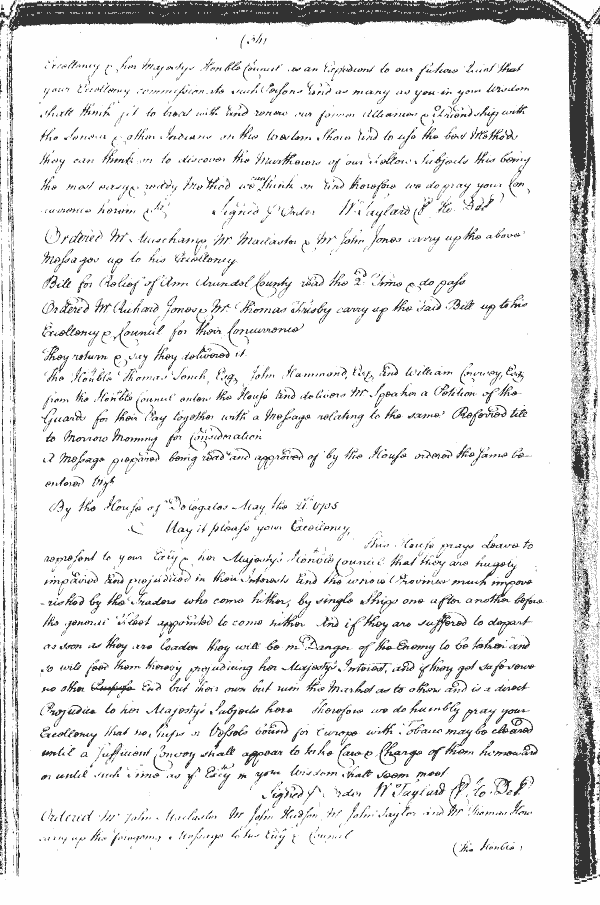 (34)
Excellency & her Majestys Honble Council as an Expedient to our future Quiet that
your Excellency commissionate such Persons and as many as you in your Wisdom
shall think fit to treat with and renew our former Alliances & Friendship with
the Seneca & other Indians on the Western Shore and to use the best Method
they can think on to discover the Murtherers of our Fellow Subjects this being
the most easy & ready Method we can think on and therefore we do pray your Con
currence herein &c Signed p Order W Taylard Cl Ho. Del
Ordered Mr Muschamp, Mr Macclaster & Mr John Jones carry up the above
Messages up to his Excellency
Bill for Relief of Ann Arundel County read the 2d Time & do pass
Ordered Mr Richard Jones & Mr Thomas Frisby carry up the said Bill up to his
Excellency & Council for their Concurrence
They return & say they delivered it
The Honble Thomas Tench, Esq, John Hammond, Esq, and William Coursey, Esq
from the Honble Council enter the House and delivers Mr Speaker a Petition of the
Guards for their Pay together with a Message relating to the same Referred till
to Morrow Morning for Consideration
A Message prepared being read and approved of by the House ordered the same be
entered
By the House of Delegates May the 21 1705
May it please your Excellency
This House prays Leave to
represent to your Excy & her Majestys Honble Council that they are hugely
impaired and prejudiced in their Interests and the whole Province much impove
rished by the Traders who come hither, by single Ships one after another before
the general Fleet appointed to come hither And if they are suffered to depart
as soon as they are loaden they will be in Danger of the Enemy to be taken and
so will feed them thereby prejudicing her Majestys Interest, and if they get safe
no other End but their own but ruin the Market as to others and is a direct
Prejudice to her Majestys Subjects here Therefore we do humbly pray your
Excellency that no Ships or Vessels bound for Europe with Tobacco may be cleared
until a sufficient Convoy shall appear to take Care & Charge of them homeward
or until such Time as yr Excy in your Wisdom shall seem meet
Signed p Order W Taylard Cl Ho Del
Ordered Mr John Macclaster Mr John Hudson Mr John Taylor and Mr Thomas How
carry up the foregoing Message to his Excy & Council
(The Honble)